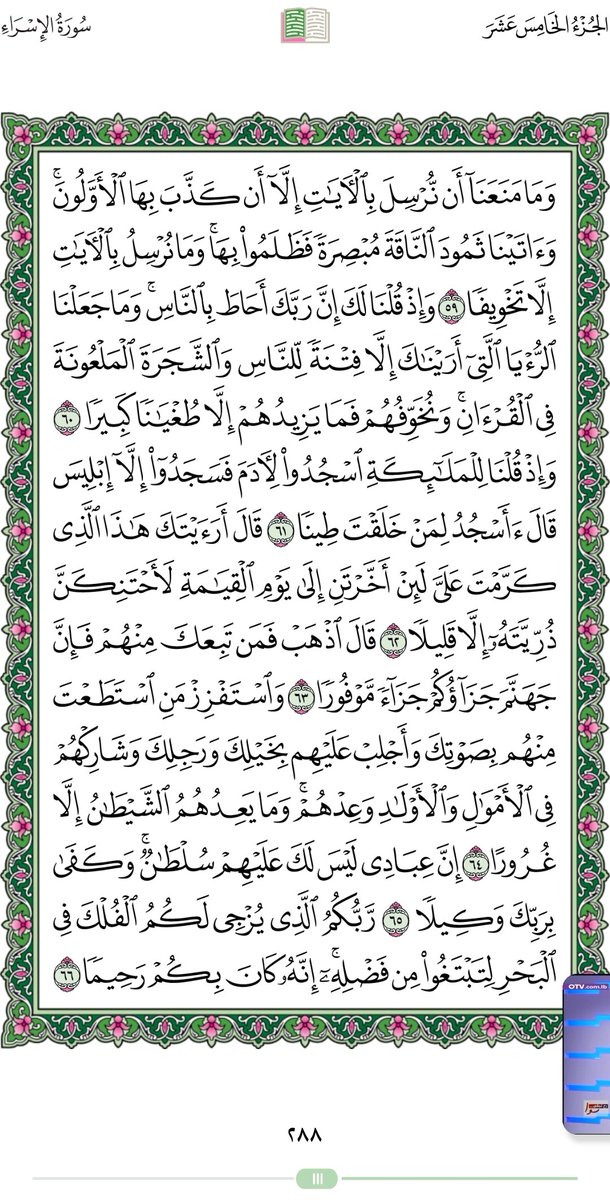 الجُزْءُ الخَامِسَ عَشَرَ
سُورَةُ الإِسْرَاءِ
وَمَا مَنَعَنَآ أَن نُّرْسِلَ بِٱلْأَيَٰتِ إِلَّآ أَن كَذَّبَ بِهَا ٱلْأَوَّلُونَۚ
وَءَاتَيْنَا ثَمُودَ ٱلنَّاقَةَ مُبْصِرَةً فَظَلَمُوا۟ بِهَاۚ وَمَا نُرْسِلُ بِٱلْأَيَٰتِ
إِلَّا تَخْوِيفًا ٥٩ وَإِذْ قُلْنَا لَكَ إِنَّ رَبَّكَ أَحَاطَ بِٱلنَّاسِۚ وَمَا جَعَلْنَا
ٱلرُّءْيَا ٱلَّتِىٓ أَرَيْنَٰكَ إِلَّا فِتْنَةً لِّلنَّاسِ وَٱلشَّجَرَةَ ٱلْمَلْعُونَةَ
فِى ٱلْقُرْءَانِۚ وَنُخَوِّفُهُمْ فَمَا يَزِيدُهُمْ إِلَّا طُغْيَٰنًا كَبِيرًا ٦٠
وَإِذْ قُلْنَا لِلْمَلَٰٓئِكَةِ ٱسْجُدُوا۟ لِأَدَمَ فَسَجَدُوٓا۟ إِلَّآ إِبْلِيسَ
قَالَ ءَأَسْجُدُ لِمَنْ خَلَقْتَ طِينًا ٦١ قَالَ أَرَءَيْتَكَ هَٰذَا ٱلَّذِى
كَرَّمْتَ عَلَىَّ لَئِنْ أَخَّرْتَنِ إِلَىٰ يَوْمِ ٱلْقِيَٰمَةِ لَأَحْتَنِكَنَّ
ذُرِّيَّتَهُۥٓ إِلَّا قَلِيلًا ٦٢ قَالَ ٱذْهَبْ فَمَن تَبِعَكَ مِنْهُمْ فَإِنَّ
جَهَنَّمَ جَزَآؤُكُمْ جَزَآءً مَّوْفُورًا ٦٣ وَٱسْتَفْزِزْ مَنِ ٱسْتَطَعْتَ
مِنْهُم بِصَوْتِكَ وَأَجْلِبْ عَلَيْهِم بِخَيْلِكَ وَرَجِلِكَ وَشَارِكْهُمْ
فِى ٱلْأَمْوَٰلِ وَٱلْأَوْلَٰدِ وَعِدْهُمْۚ وَمَا يَعِدُهُمُ ٱلشَّيْطَٰنُ إِلَّا
غُرُورًا ٦٤ إِنَّ عِبَادِى لَيْسَ لَكَ عَلَيْهِمْ سُلْطَٰنٌۚ وَكَفَىٰ
بِرَبِّكَ وَكِيلًا ٦٥ رَّبُّكُمُ ٱلَّذِى يُزْجِى لَكُمُ ٱلْفُلْكَ فِى
ٱلْبَحْرِ لِتَبْتَغُوا۟ مِن فَضْلِهِۦٓۚ إِنَّهُۥ كَانَ بِكُمْ رَحِيمًا ٦٦
OTV.com.lb
٢٨٨